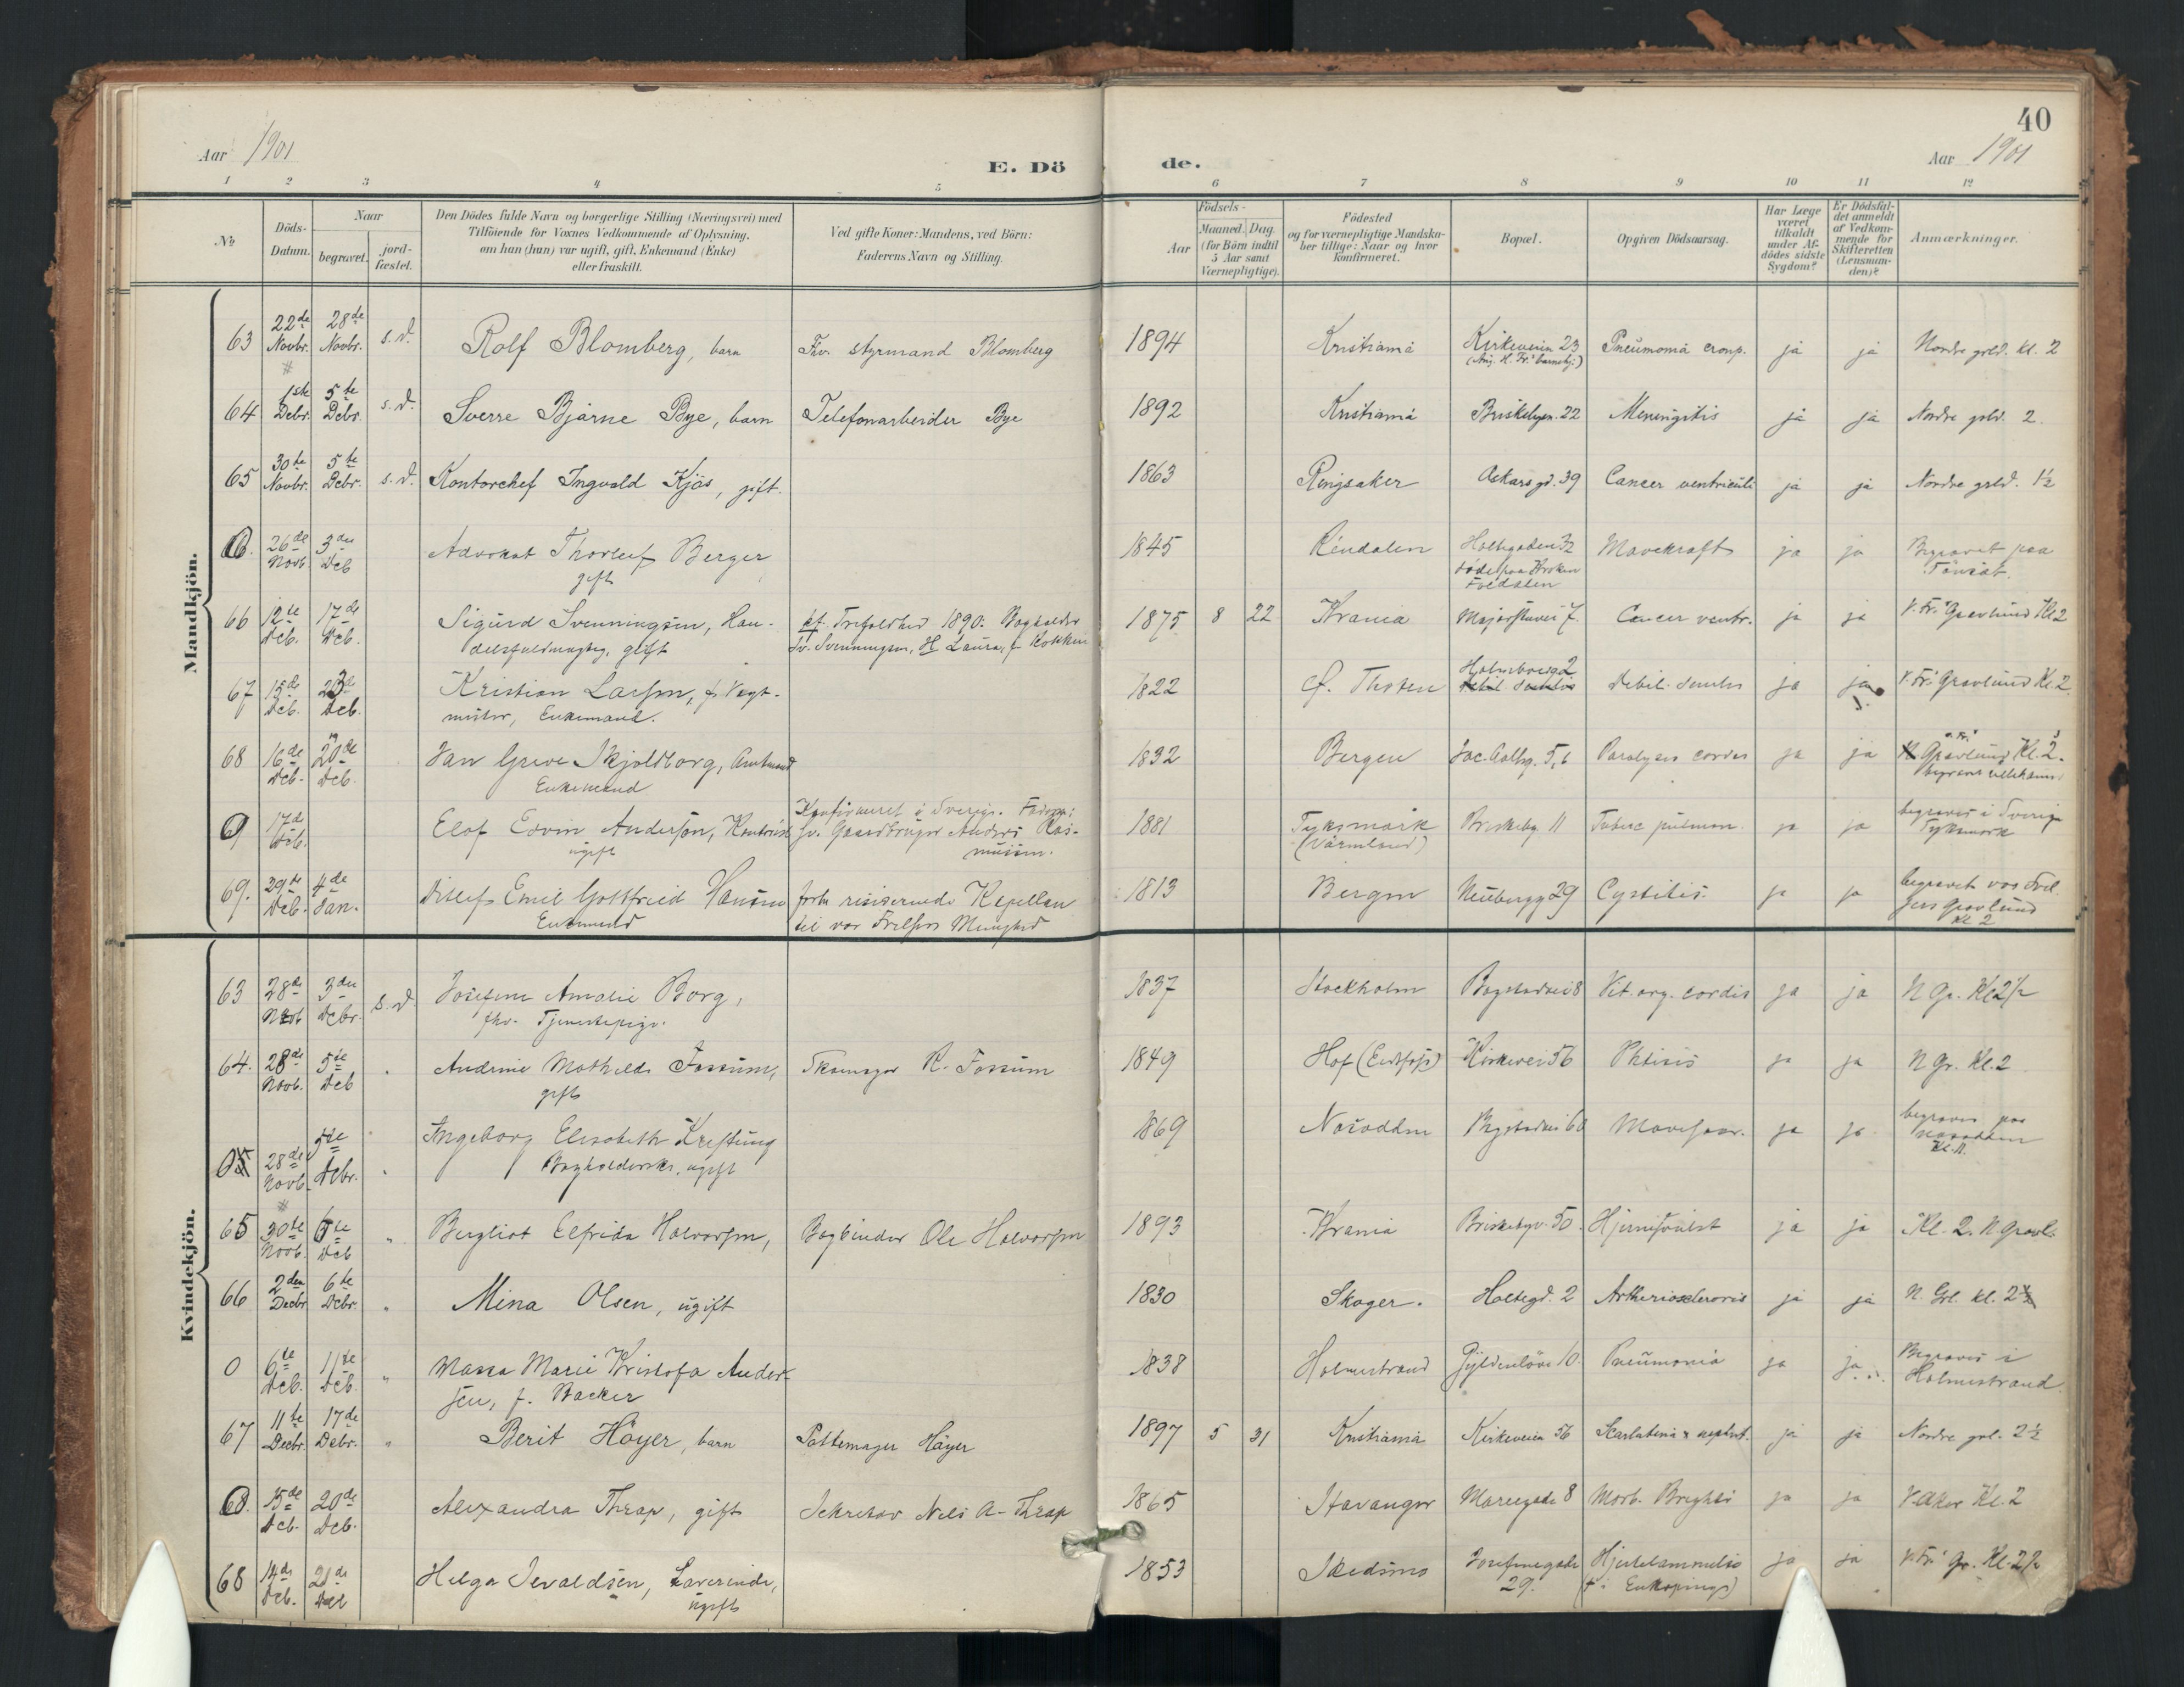 40
Aar 1901
E. Dö
de.
Aar 1901
1 2 3 4 5 6 7 8 9 10 11 12
№
Döds-
Datum.
Naar
begravet.
jord-
fæstet.
Den Dödes fulde Navn og borgerlige Stilling (Næringsvei) med
Tilföiende for Voxnes Vedkommende af Oplysning,
om han (hun) var ugift, gift, Enkemand (Enke)
eller fraskilt.
Ved gifte Koner: Mandens, ved Börn:
Faderens Navn og Stilling.
Födsels-
Aar
Maaned. Dag.
(for Börn indtil
5 Aar samt
Værnepligtige).
Födested
og for værnepligtige Mandska-
ber tillige: Naar og hvor
konfirmeret.
Bopæl.
Opgiven Dödsaarsag.
Har Læge
været
tilkaldt
under Af-
dödes sidste
Sygdom?
Er Dödsfal-
det anmeldt
af Vedkom-
mende for
Skifteretten
(Lensman-
den)?
Anmærkninger.
Mandkjön.
63 22de Novbr. 28de Novbr. s. d. Rolf Blomberg, barn Fhv. styrmand Blomberg 1894 Kristiania Kirkeveien 23 Pneumonia croup. ja ja Nordre grld. kl. 2
64 1ste Debr. 5te Debr. s. d. Sverre Bjarne Bye, barn Telefonarbeider Bye 1892 Kristiania Briskebyv. 22 Meningitis ja ja Nordre grld. 2.
65 30te Novbr. 5te Debr. s. d. Kontorchef Ingvald Kjös, gift. 1863 Ringsaker Oskars gd. 39 Cancer ventriculi ja ja Nordre grld. 1½
0 26de Novb 3die Deb Advokat Thorleif Berger 1845 Rendalen Holtegaden 32 Mavekræft ja ja Begravet paa
gift död paa Kroken Tönset.
66 12te Deb. 17de Deb. Sigurd Svenningsen, Han- kf. Trefoldhed 1890. Bogholder 1875 8 22 Krania Majorstuvei 7. Cancer ventr. ja ja V. Fr. Gravlund Kl 2
delsfuldmægtig, gift Sv. Svenningsen, H Laura f. Kokkin
67 15de Deb. 23de Deb. Kristian Larsen, f. Vagt- 1822 f. Thoten Holmboesg 2 Debil. senilis ja ja V. Fr. Gravlund Kl. 2.
mester, Enkemand.
68 16de Deb. 20de Deb. Jan Greve Skjoldborg, Amtmand 1832 Bergen Jac. Aallsg. 5, 6 Paralysis cordis ja ja Gravlund Kl. 2.
Enkemand
0 17de Deb. Elof Edvin Anderson, Kontorist Konfirmeret i Sverige. Fader: 1881 Tyksmark Briskeby 11 Tuberc pulmon. ja ja begraves i Sverige
ugift fv. Gaardbruger Anders Ras- (Värmland) Tyksmark
musen.
69. 29de Deb. 4de Jan. Ditlef Emil Gottfried Hansen forh. resiserende Kapellan 1813 Bergen Neubergg 29 Cystitis ja ja begravet vor Frel
Enkemand til vor Frelsers Menighed sers Gravlund
Kl 2
Kvindekjön.
63 28de Novb 3die Debr. s. d. Josefine Amalie Borg, 1837 Stockholm Bogstadvei 8 Vit. org. cordis ja ja N Gr. Kl 2½
fhv. Tjenestepige.
64. 28de Novb. 5te Deb " Andrine Mathilde Fossum, Skomager K. Fossum 1849 Hof (Eidsfoss) Kirkevei 56 Phtisis ja ja N Gr. Kl. 2
gift
0 28de Novb. 5te Debr. " Ingeborg Elisabeth Kjeftung 1869 Næsodden Bogstadvei 60 Mavesaar. ja ja begraves paa
Bogholderske, ugift Næsodden
65 30te Novb. 6te Deb " Bergliot Elfrida Halvorsen, Bogbinder Ole Halvorsen 1893 Krania Briskebyv. 50 Hjernesvulst ja ja Kl. 2. N. Gravl.
66 2den Decbr 6te Debr. " Mina Olsen, ugift 1830 Skoger. Holtegd. 2 Artheriosclerosis ja ja N. Grl. kl. 2
0 6te Deb. 11te Deb. " Massa Marie Kristofa Ander- 1838 Holmestrand Gyldenlöve 10 Pneumonia ja ja Begraves i
sen, f. Backer Holmestrand
67 11te Decbr 17de Debr. " Berit Höyer, barn Pottemager Höyer 1897 5 31 Kristiania Kirkeveien 56 Scarlatina & nephrit. ja ja Nordre grl. 2½
0 15de Deb. 20de Deb. Alexandra Thrap, gift Sekretær Nils A. Thrap 1865 Stavanger Mariesgade 8 Morb. Brightii ja ja V. Aker Kl. 2
68 14de Deb. 21de Deb Helga Sevaldsen, Lærerinde, 1853 Skedsmo Josefinegade Hjertelammelse ja ja V. Fr. Gr. Kl. 2½
ugift 29.